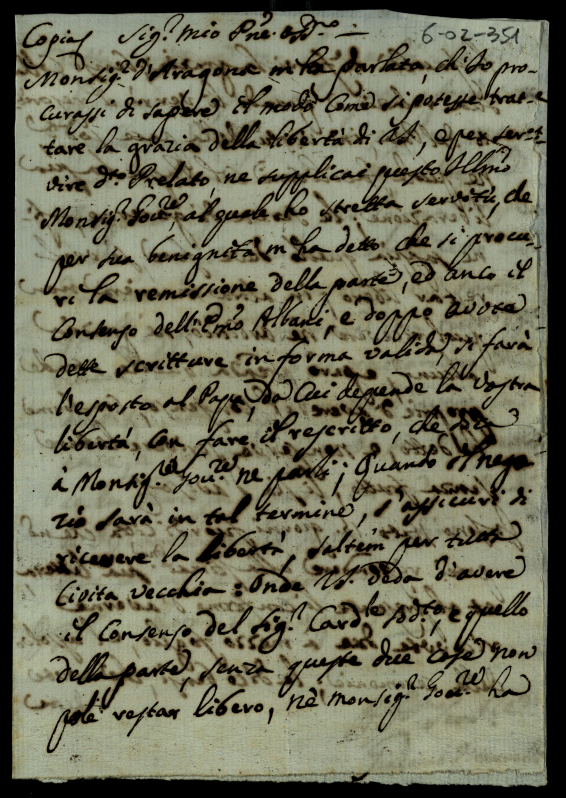 6-02-351
Copia Sig.r mio P.ne
Monsig.r d'Aragona m'ha parlato, ch'Io pro-
curassi di sapere il modo come si potesse trat-
tare la grazia della libertà di VS., e per ser-
vire d.to Prelato, ne supplicai questo Ill.mo
Monsig.r Gov.re, al quale ho stretta servitù, che
per sua benignità m'ha detto che si procu-
ri la remissione della parte, ed anco il
consenso dell'Em.o Albani, e doppo avute
dette scritture in forma valida, si farà
l'esposto al Papa, da cui depende la vostra
libertà, con fare il rescritto, che
à Monsig.r Gov.re ne parli; Quando il nego-
zio sarà in tal termine, s'assicuri di
ricevere la libertà, saltem per tutta
Civita vecchia: Onde VS. veda d'avere
il consenso del Sig.r Card.le sud.to, e quello
della parte, senza queste due cose non
pole restar libero, nè Monsig.r Gov.re ha